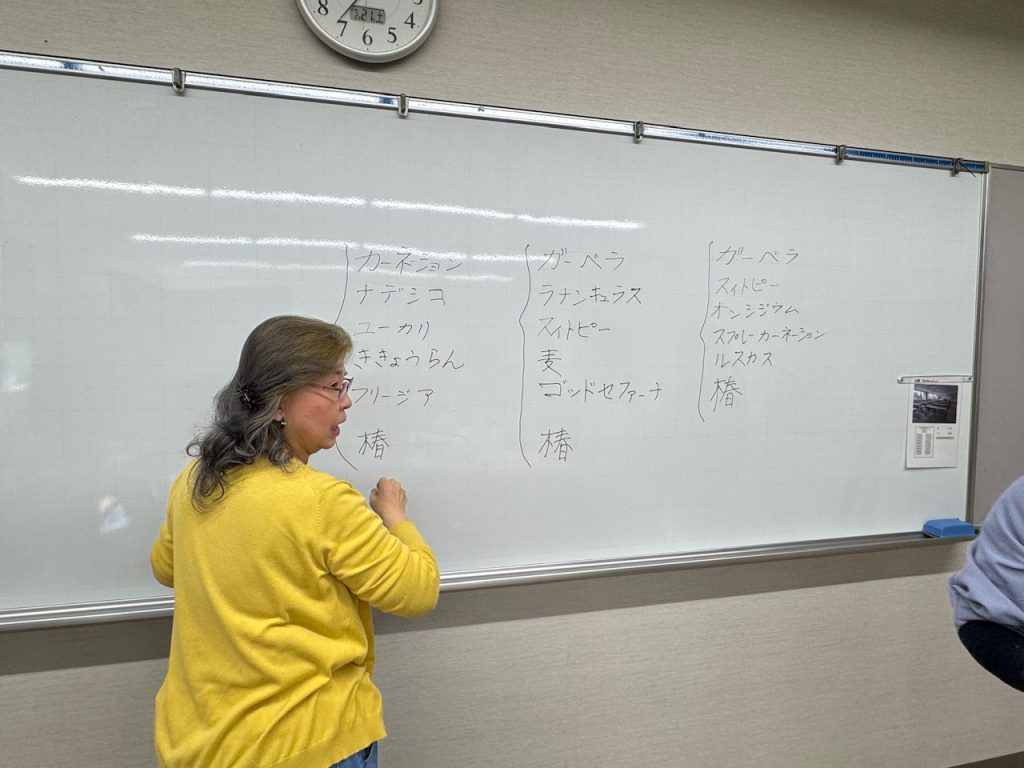 8
7
6
5
4
カーネーション
ナデシコ
ユーカリ
ききょうらん
フリージア
椿
ガーベラ
ラナンキュラス
スイトピー
麦
ゴッドセファーナ
椿
ガーベラ
スイトピー
オンシジウム
スプレーカーネーション
ルスカス
椿